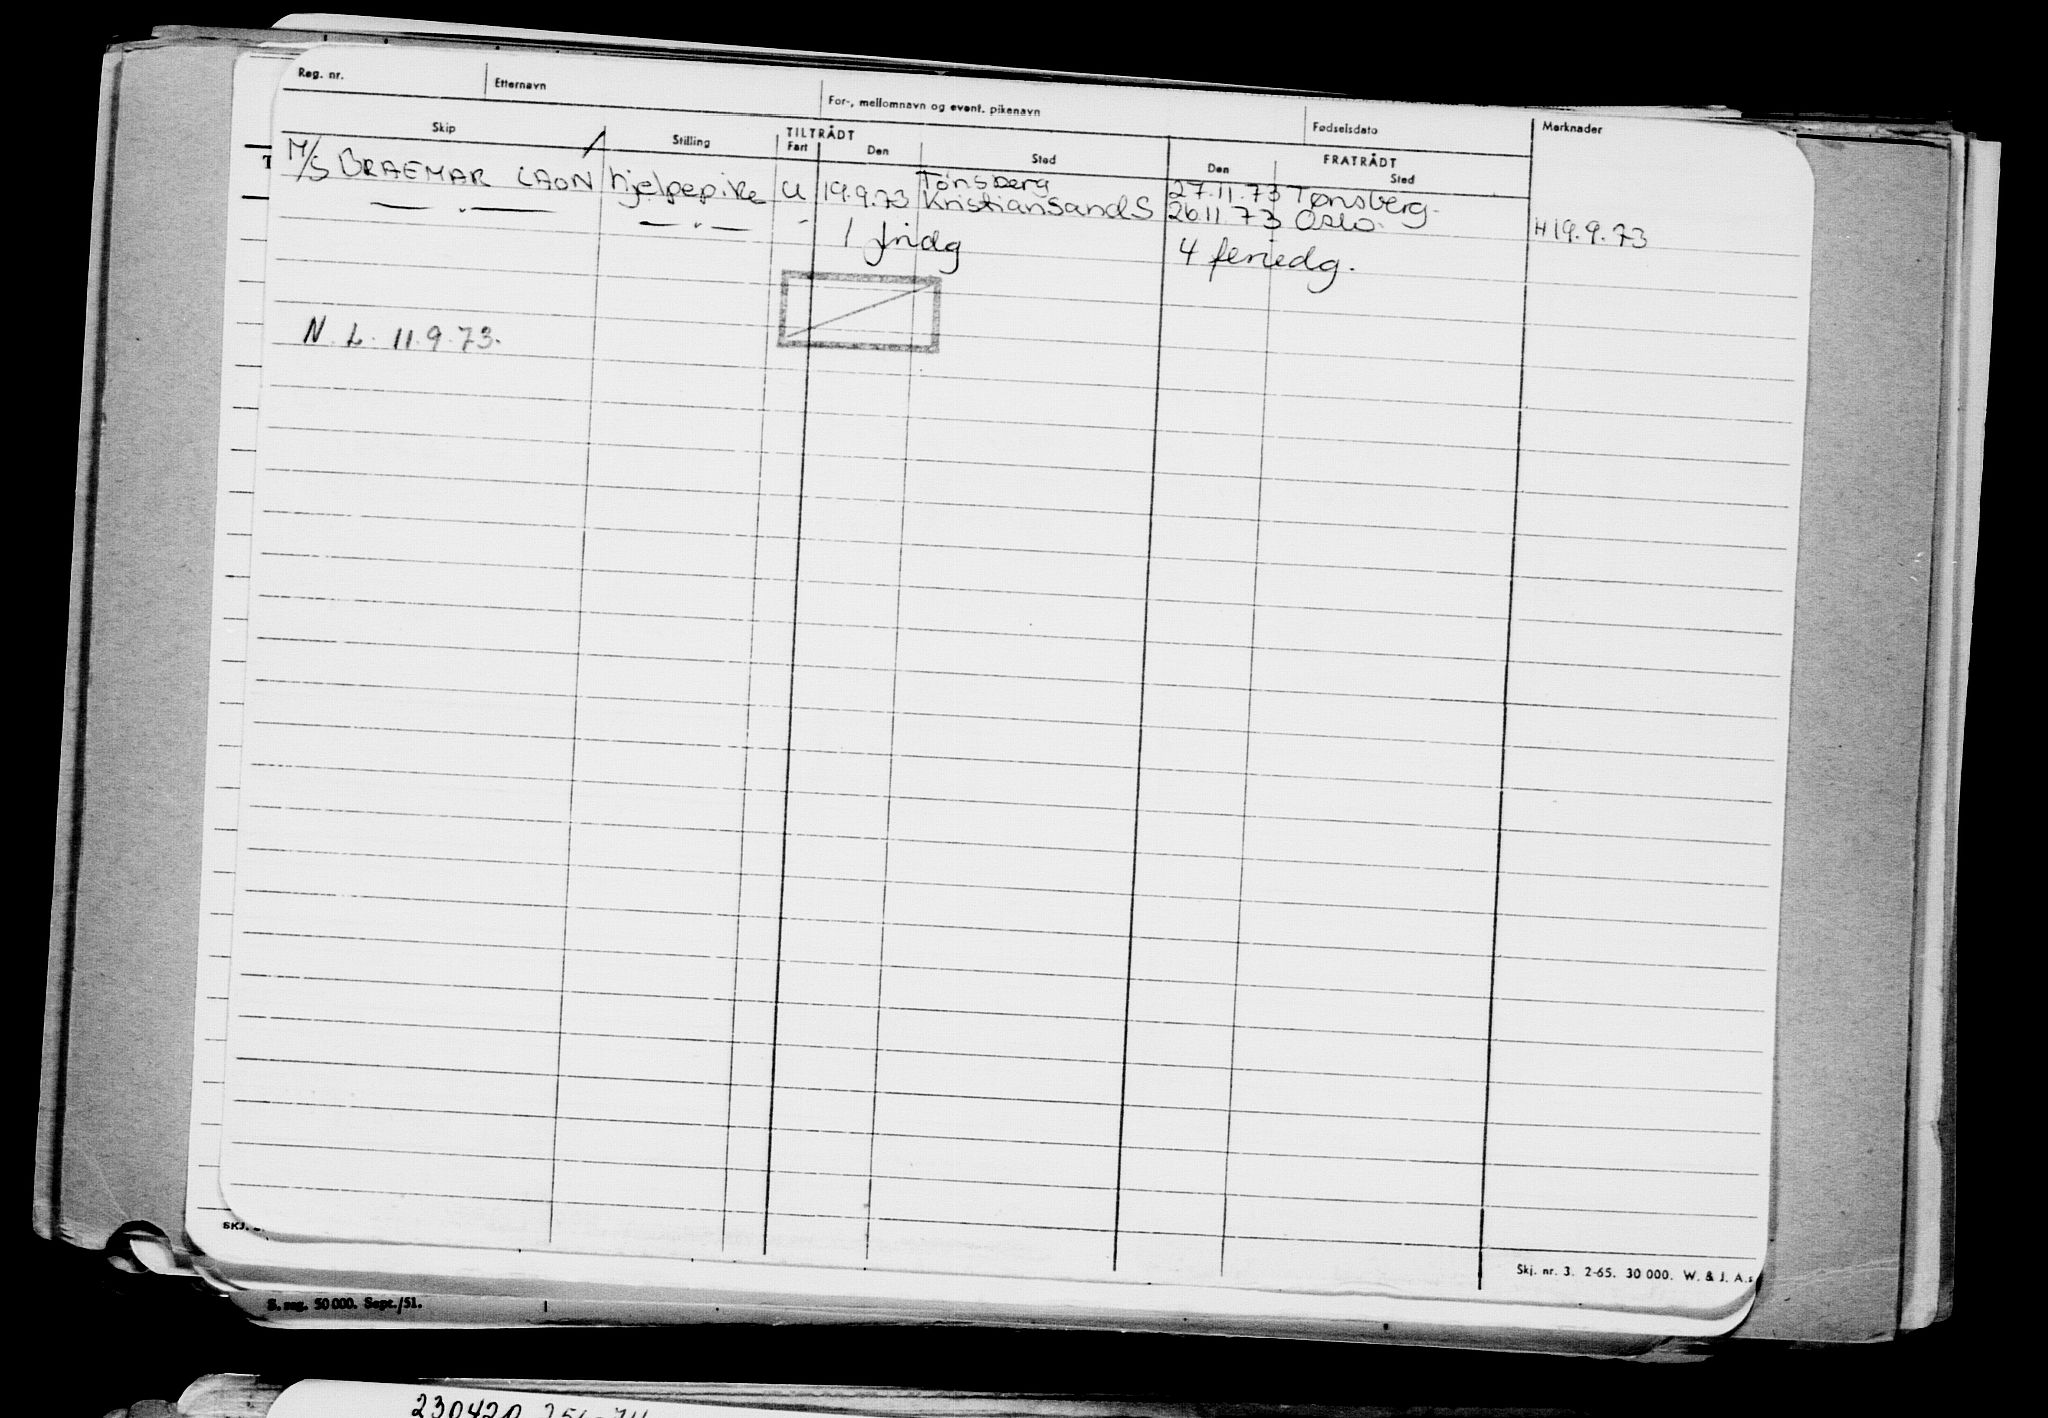 Reg. nr. Etternavn For-, mellomnavn og event. pikenavn Fødselsdato Merknader
Skip Stilling TILTRÅDT FRATRÅDT
Fart Den Sted Den Sted
M/S BRAEMAR LAON hjelpepike U 19.9.73 Tønsberg 27.11.73 Tønsberg.
— " — — " — " Kristiansand S 26 11 73 Oslo. H 19.9.73
1 fridg 4 feriedg.
N. L. 11.9.73.
Skj. nr. 3. 2-65. 30 000. W. & J. A.s
S. reg. 50 000. Sept./51.
230420